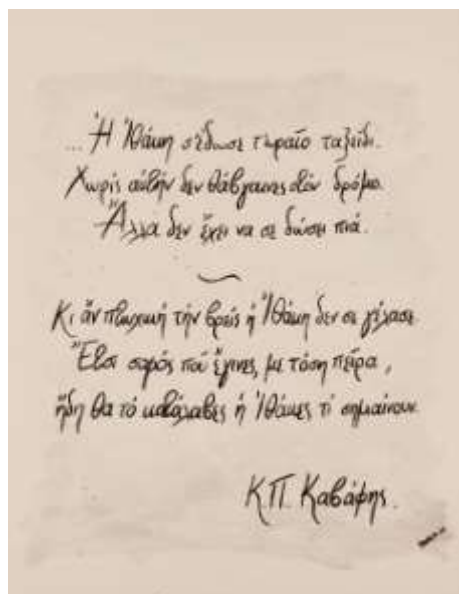 ...Ἡ Ἰθάκη σ' έδωσε τ' ωραίο ταξείδι.
Χωρίς αὐτήν δεν θάβγαινες στόν δρόμο.
Ἄλλά δεν ἔχει να σε δώσει πιά.
Κι ἄν πτωχική τήν βρεῖς ἡ Ἰθάκη δεν σε γέλασε.
Ἔτσι σοφός πού ἔγινες, με τόση πεῖρα,
ἤδη θα τό κατάλαβες ἡ Ἰθάκες τί σημαίνουν.
Κ.Π. Καβάφης.